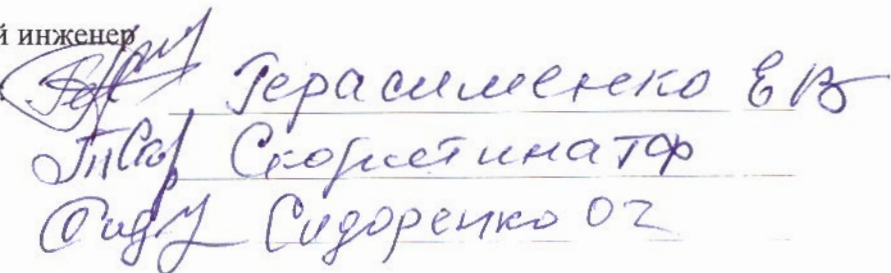 й инженер
Герасименко Е В
Скобистина ТФ
Сидоренко О Г